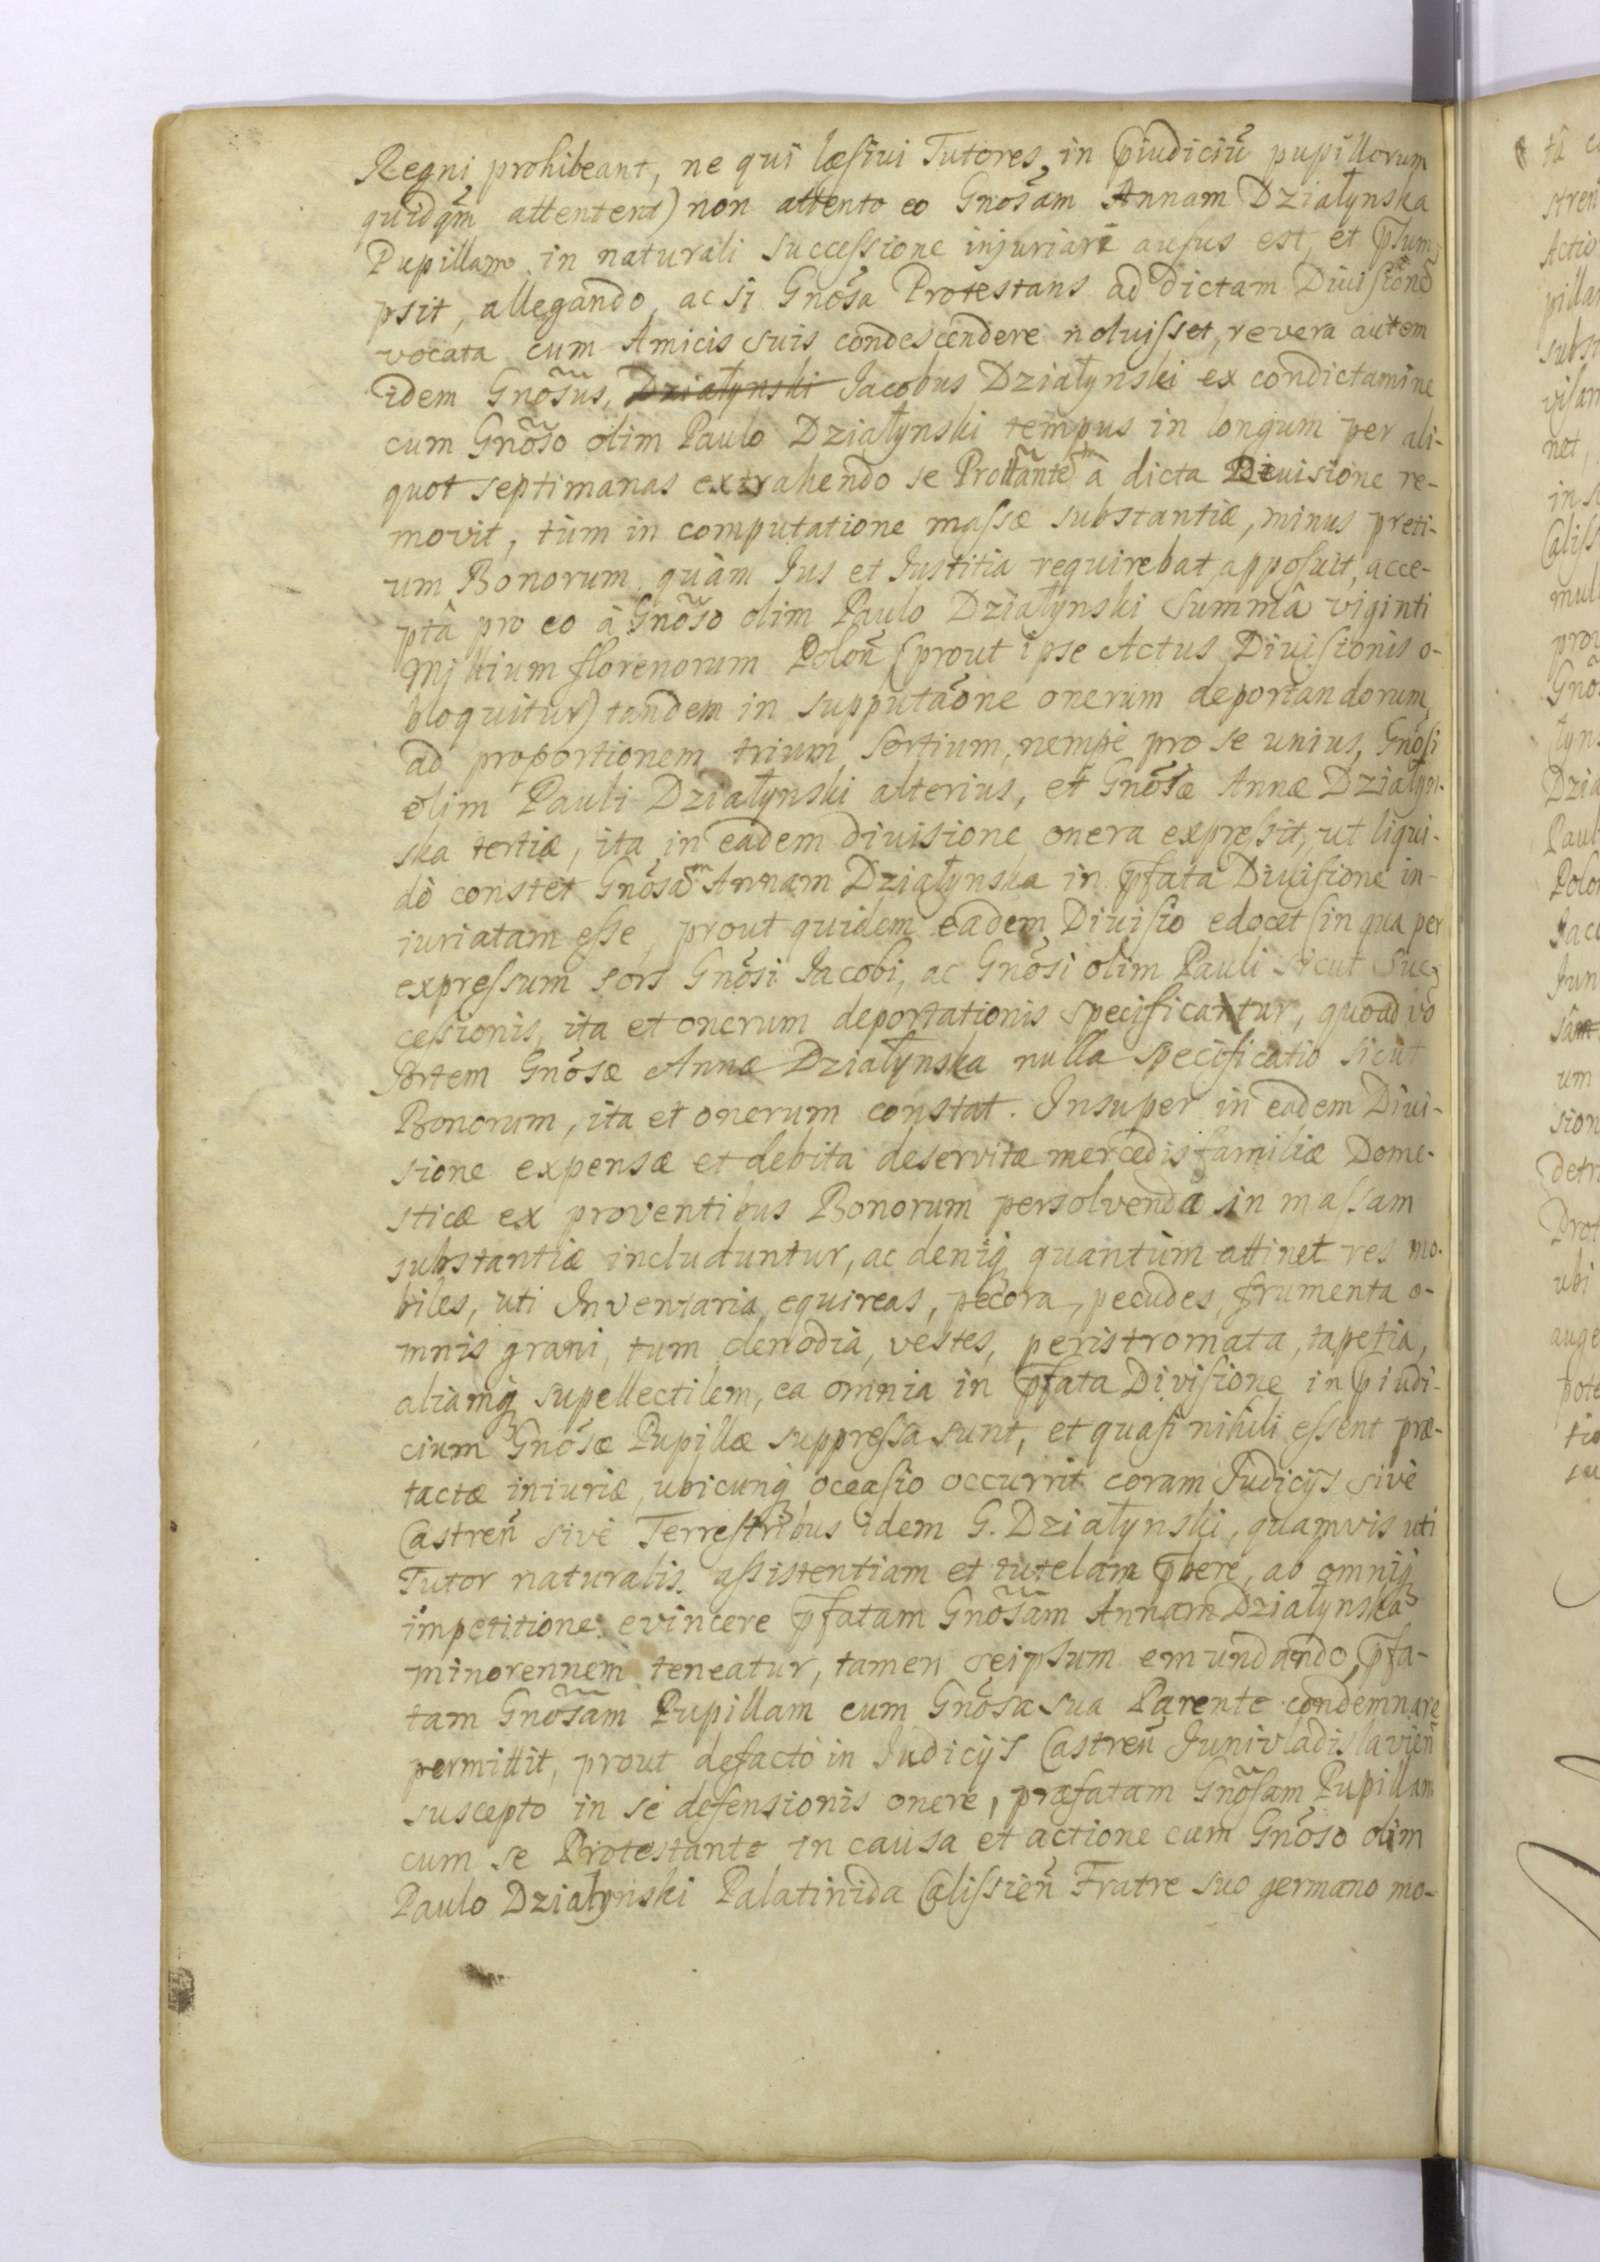 Regni prohibeant, ne qui læsivi Tutores, in p̄iudiciū pupillorum
quidq̄m attentent) non attento eo Gnos̃am Annam Działynska
Pupillam in naturali successione injuriari ausus est, et p̄sum-
psit, allegando, ac si Gnos̃a Protestans ad dictam Divisionē
vocata cum Amicis suis condescendere noluisset, revera autem
idem Gnos̃us, Działynski Iacobus Działynski ex condictamine
cum Gnos̃o olim Paulo Działynski tempus in longum per ali-
quot septimanas extrahendo se Prottãntem à dicta Divisione re-
movit, tùm in computatione massæ substantiæ, minus preti-
um Bonorum, quàm Ius et Iustitia requirebat apposuit, acce-
ptâ pro eo à Gnos̃o olim Paulo Działynski Summâ viginti
Millium florenorum Polon̄ (prout ipse Actus Divisionis o-
bloquitur) tandem in supputāone onerum deportandorum,
ad proportionem trium Sortium, nempè pro se unius, Gnos̃i
olim Pauli Działynski alterius, et Gnos̃æ Annæ Działyn-
ska tertiæ, ita in eadem divisione onera expressit, ut liqui-
dò constet Gnos̃am Annam Działynska in p̄fata Divisione in-
iuriatam esse, prout quidem eadem Divisio edocet (in qua per
expressum sors Gnos̃i Iacobi, ac Gnos̃i olim Pauli sicut Suc-
cessionis, ita et onerum deportationis specificatur, quoad v̄o
Sortem Gnos̃æ Annæ Działynska nulla specificatio sicut
Bonorum, ita et onerum constat. Insuper in eadem Divi-
sione expensæ et debita deservitæ mercedis familiæ Dome-
sticæ ex proventibus Bonorum persolvenda in massam
substantiæ includuntur, ac deniq; quantùm attinet res mo-
biles, uti Inventaria, equireas, pecora, pecudes, frumenta o-
mnis grani, tum clenodia, vestes, peristromata, tapetia,
aliamq; supellectilem, ea omnia in p̄fata Divisione in p̄iudi-
cium Gnos̃æ Pupillæ suppressa sunt, et quasi nihili essent præ-
tactæ iniuriæ, ubicunq; occasio occurrit coram Iudicijs sivè
Castren̄ sivè Terrestribus idem G. Działynski, quamvis uti
Tutor naturalis assistentiam et tutelam p̄bere, ab omniq;
impetitione evincere p̄fatam Gnos̃am Annam Działynska
minorennem teneatur, tamen seipsum emundando, p̄fa-
tam Gnos̃am Pupillam cum Gnos̃a sua Parente condemnare
permittit, prout defacto in Iudicijs Castren̄ Iunivladislavien̄
suscepto in se defensionis onere, præfatam Gnos̃am Pupillam
cum se Protestante in causa et actione cum Gnos̃o olim
Paulo Działynski Palatinida Calissien̄ Fratre suo germano mo-